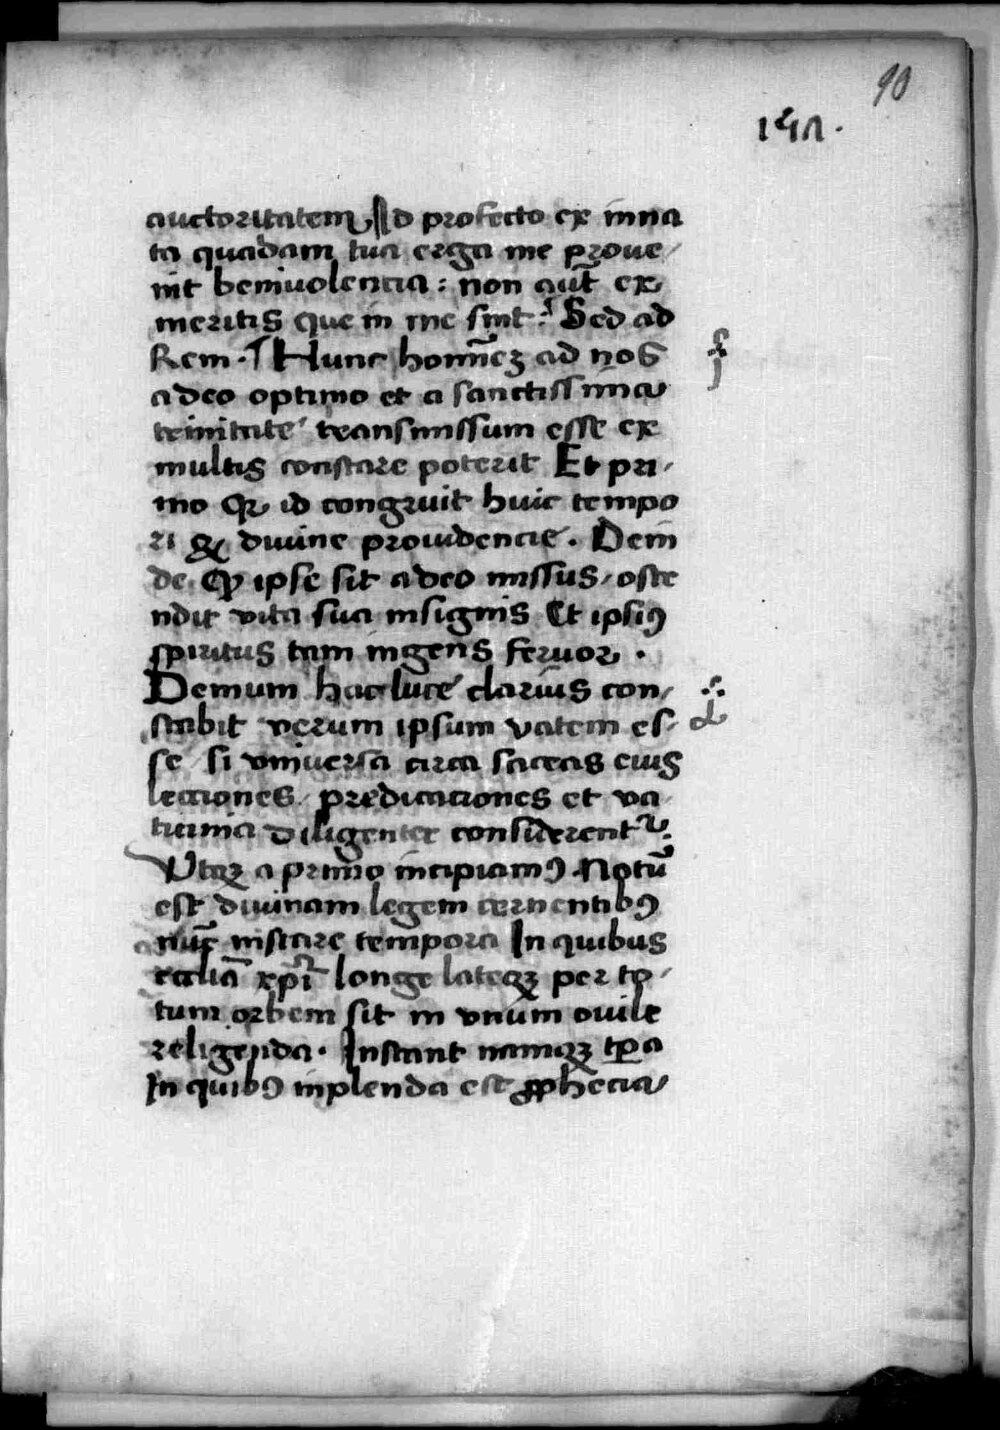 90
auctoritatem Id profecto ex inna
ta quadam tua erga me prove
nit benivolencia: non aut̄ ex
meritis que in me sint: Sed ad
Rem. ¶ Hunc homīez ad nos
a deo optimo et a sanctissima
trinitate transmissum esse ex
multis constare poterit Et pri-
mo id congruit huic tempo
ri & divine providencie. Dein
de ꝙ ipse sit a deo missus, oste
ndit vita sua insignis Et ipsiꝰ
spiritus tam ingens fervor.
Demum hac luce clarius con-
stabit verum ipsum vatem es-
se si universa circa sacras eius
lecciones, predicaciones et va
ticinia diligenter considerent᷑.
Utqꝫ a primo incipiamꝰ. Notū
est divinam legem cernentibꝰ
nūc instare tempora In quibus
eccliā xp̄i longe lateqꝫ per to-
tum orbem sit in unum ovile
religenda. Instant namqꝫ tp̄a
In quibꝰ inplenda est ꝓphecia